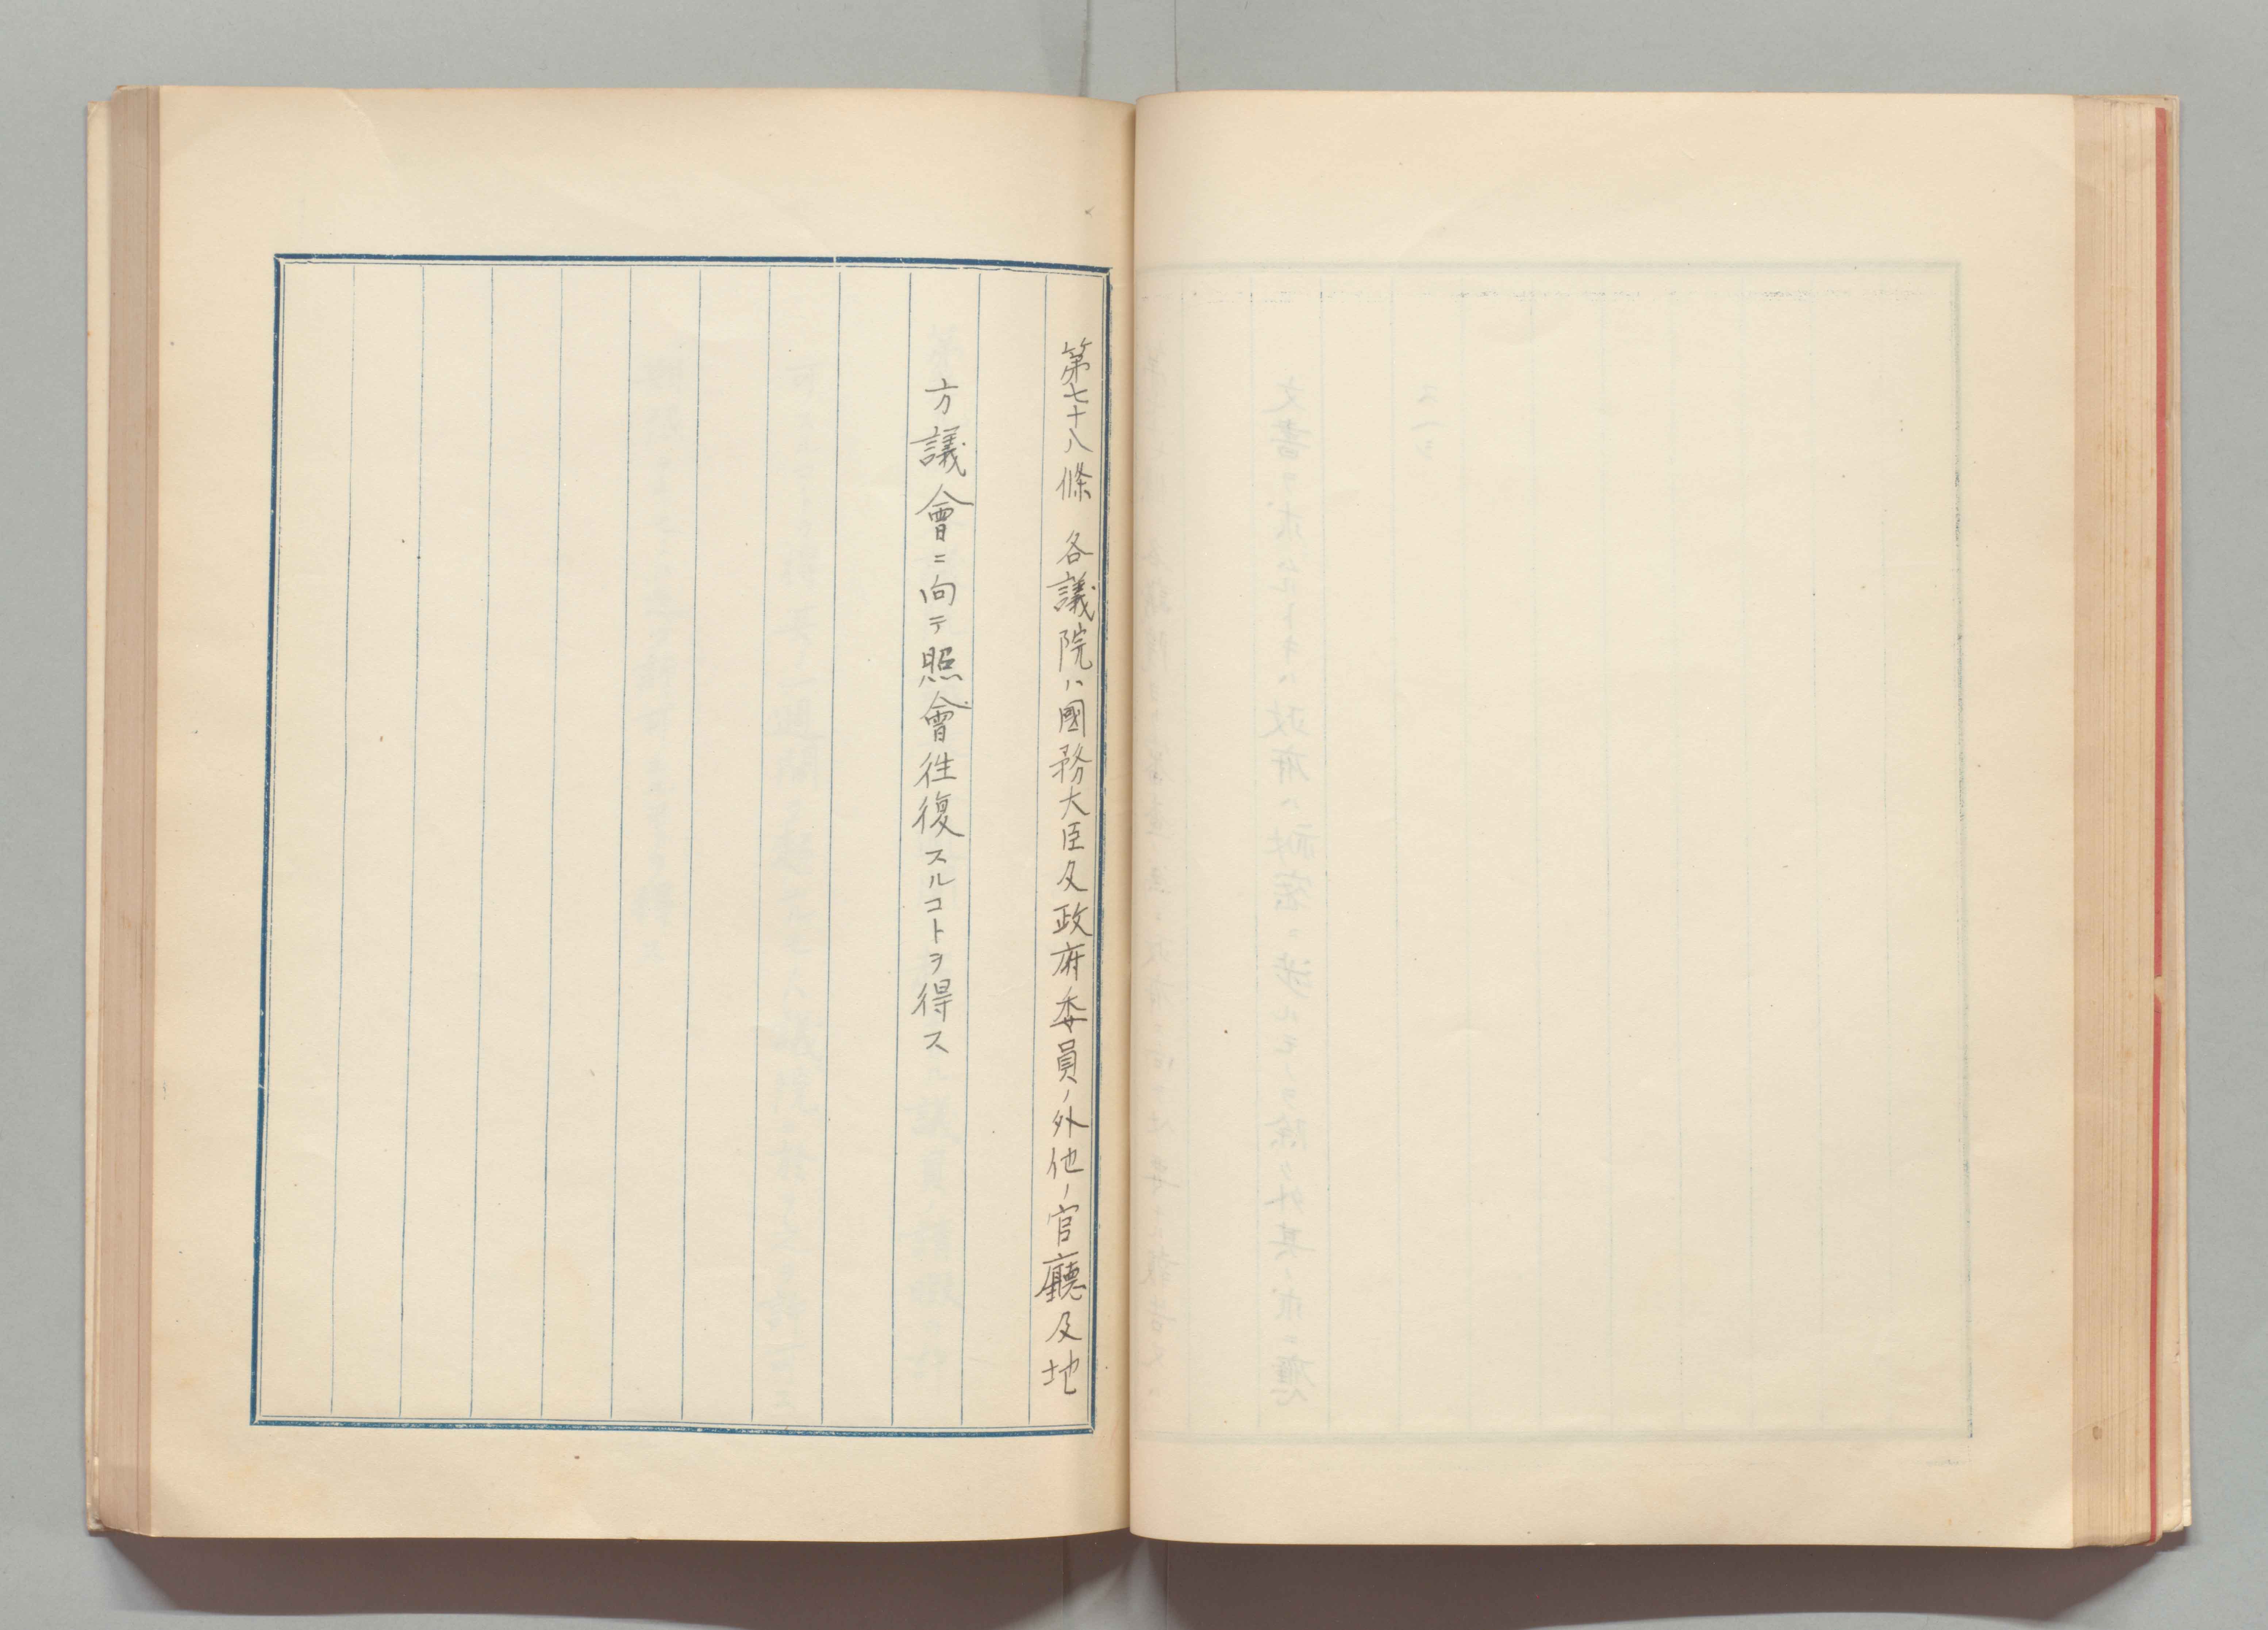 第七十八條　各議院ハ國務大臣及政府委員ノ外他ノ官廳及地
方議會ニ向テ照會往復スルコトヲ得ス